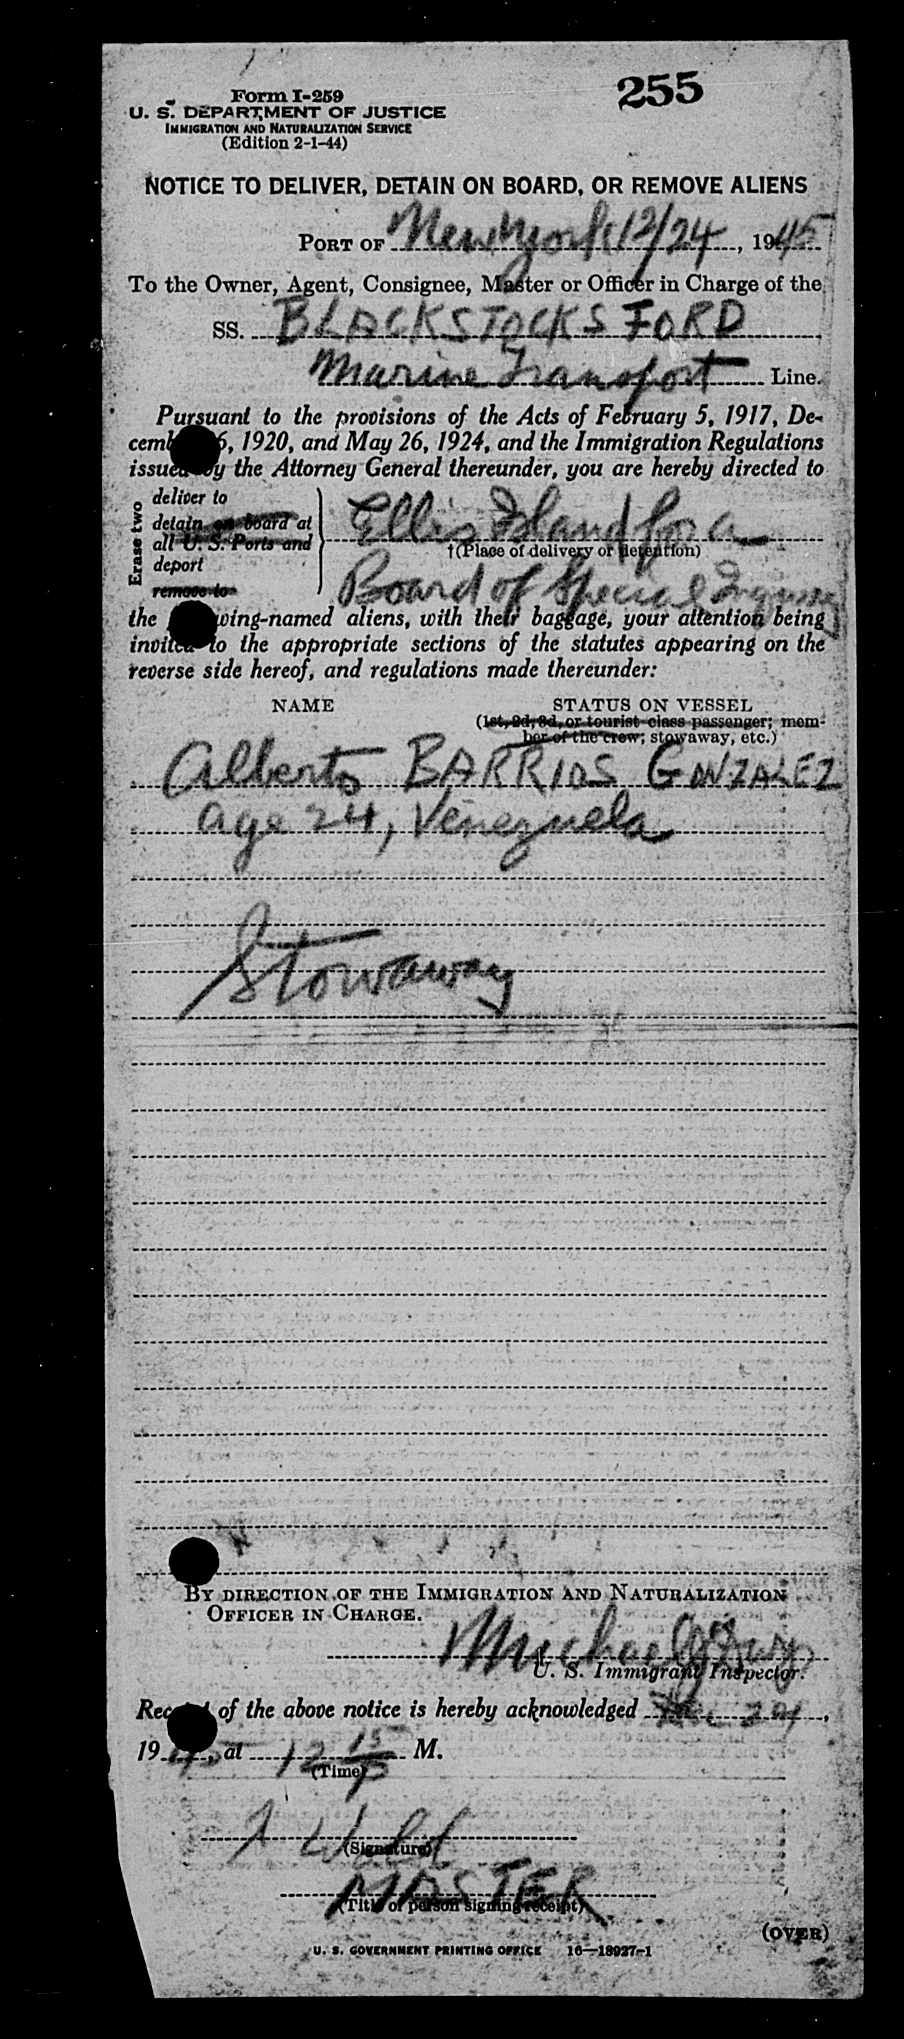 255
Form I-259
U. S. DEPARTMENT OF JUSTICE
IMMIGRATION AND NATURALIZATION SERVICE
(Edition 2-1-44)
NOTICE TO DELIVER, DETAIN ON BOARD, OR REMOVE ALIENS
PORT OF New York 12/24, 1945
To the Owner, Agent, Consignee, Master or Officer in Charge of the
SS. BLACKSTOCKS FORD
Marine Transport Line.
Pursuant to the provisions of the Acts of February 5, 1917, De-
cemb 6, 1920, and May 26, 1924, and the Immigration Regulations
issued by the Attorney General thereunder, you are hereby directed to
Erase two
deliver to
detain on board at
all U. S. Ports and
deport
remove to
Ellis Island for a
†(Place of delivery or detention)
Board of Special Inquiry
the wing-named aliens, with their baggage, your attention being
invited to the appropriate sections of the statutes appearing on the
reverse side hereof, and regulations made thereunder:
NAME STATUS ON VESSEL
(1st, 2d, 3d, or tourist class passenger; mem-
ber of the crew; stowaway, etc.)
Alberto BARRIOS GONZALEZ
age 24, Venezuela
Stowaway
BY DIRECTION OF THE IMMIGRATION AND NATURALIZATION
OFFICER IN CHARGE.
Michael
U. S. Immigrant Inspector.
Rec t of the above notice is hereby acknowledged Dec 24,
1945, at 12 15 P M.
(Time)
(Signature)
MASTER
(Title of person signing receipt)
(OVER)
U. S. GOVERNMENT PRINTING OFFICE 16—18927-1